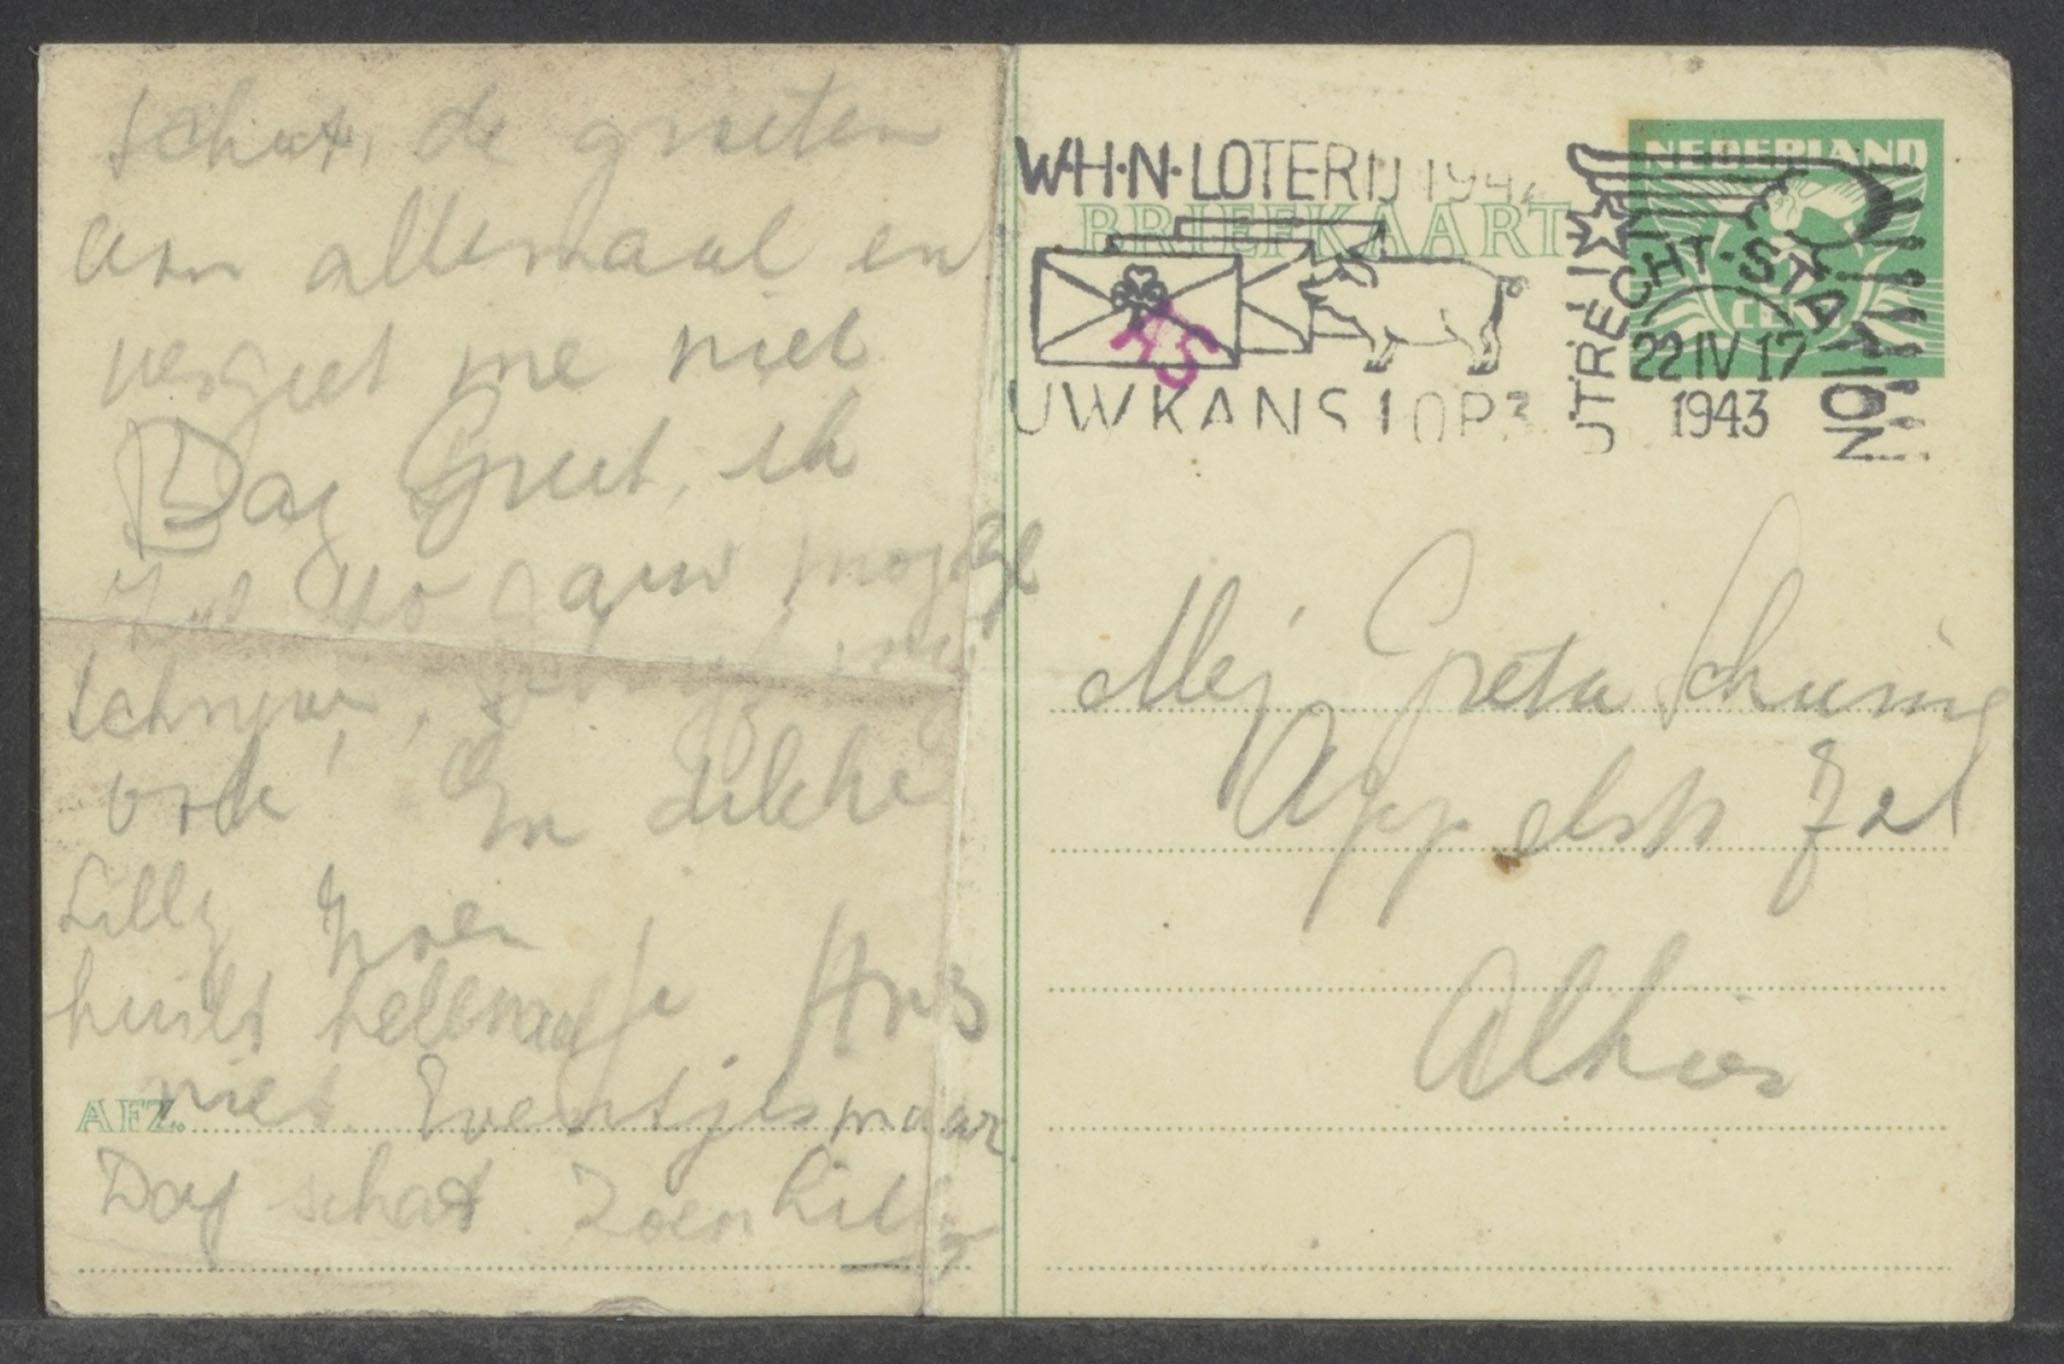 schat, de groeten
aan allemaal en
vergeet me niet
Dag Greet, ik
zal zo gauw mogelijk
schrijven,
ook! En dikke
Lilly zoen
huilt helemaal
niet. Eventjes maar.
Dag schat Zoen Lilly
AFZ.
W·H·N·LOTERIJ 194
BRIEFKAART
UW KANS 1 OP 3
H5
NEDERLAND
CENT
UTRECHT-STATION
22 IV 17
1943
Mej Greta
Appelstr
Alhier